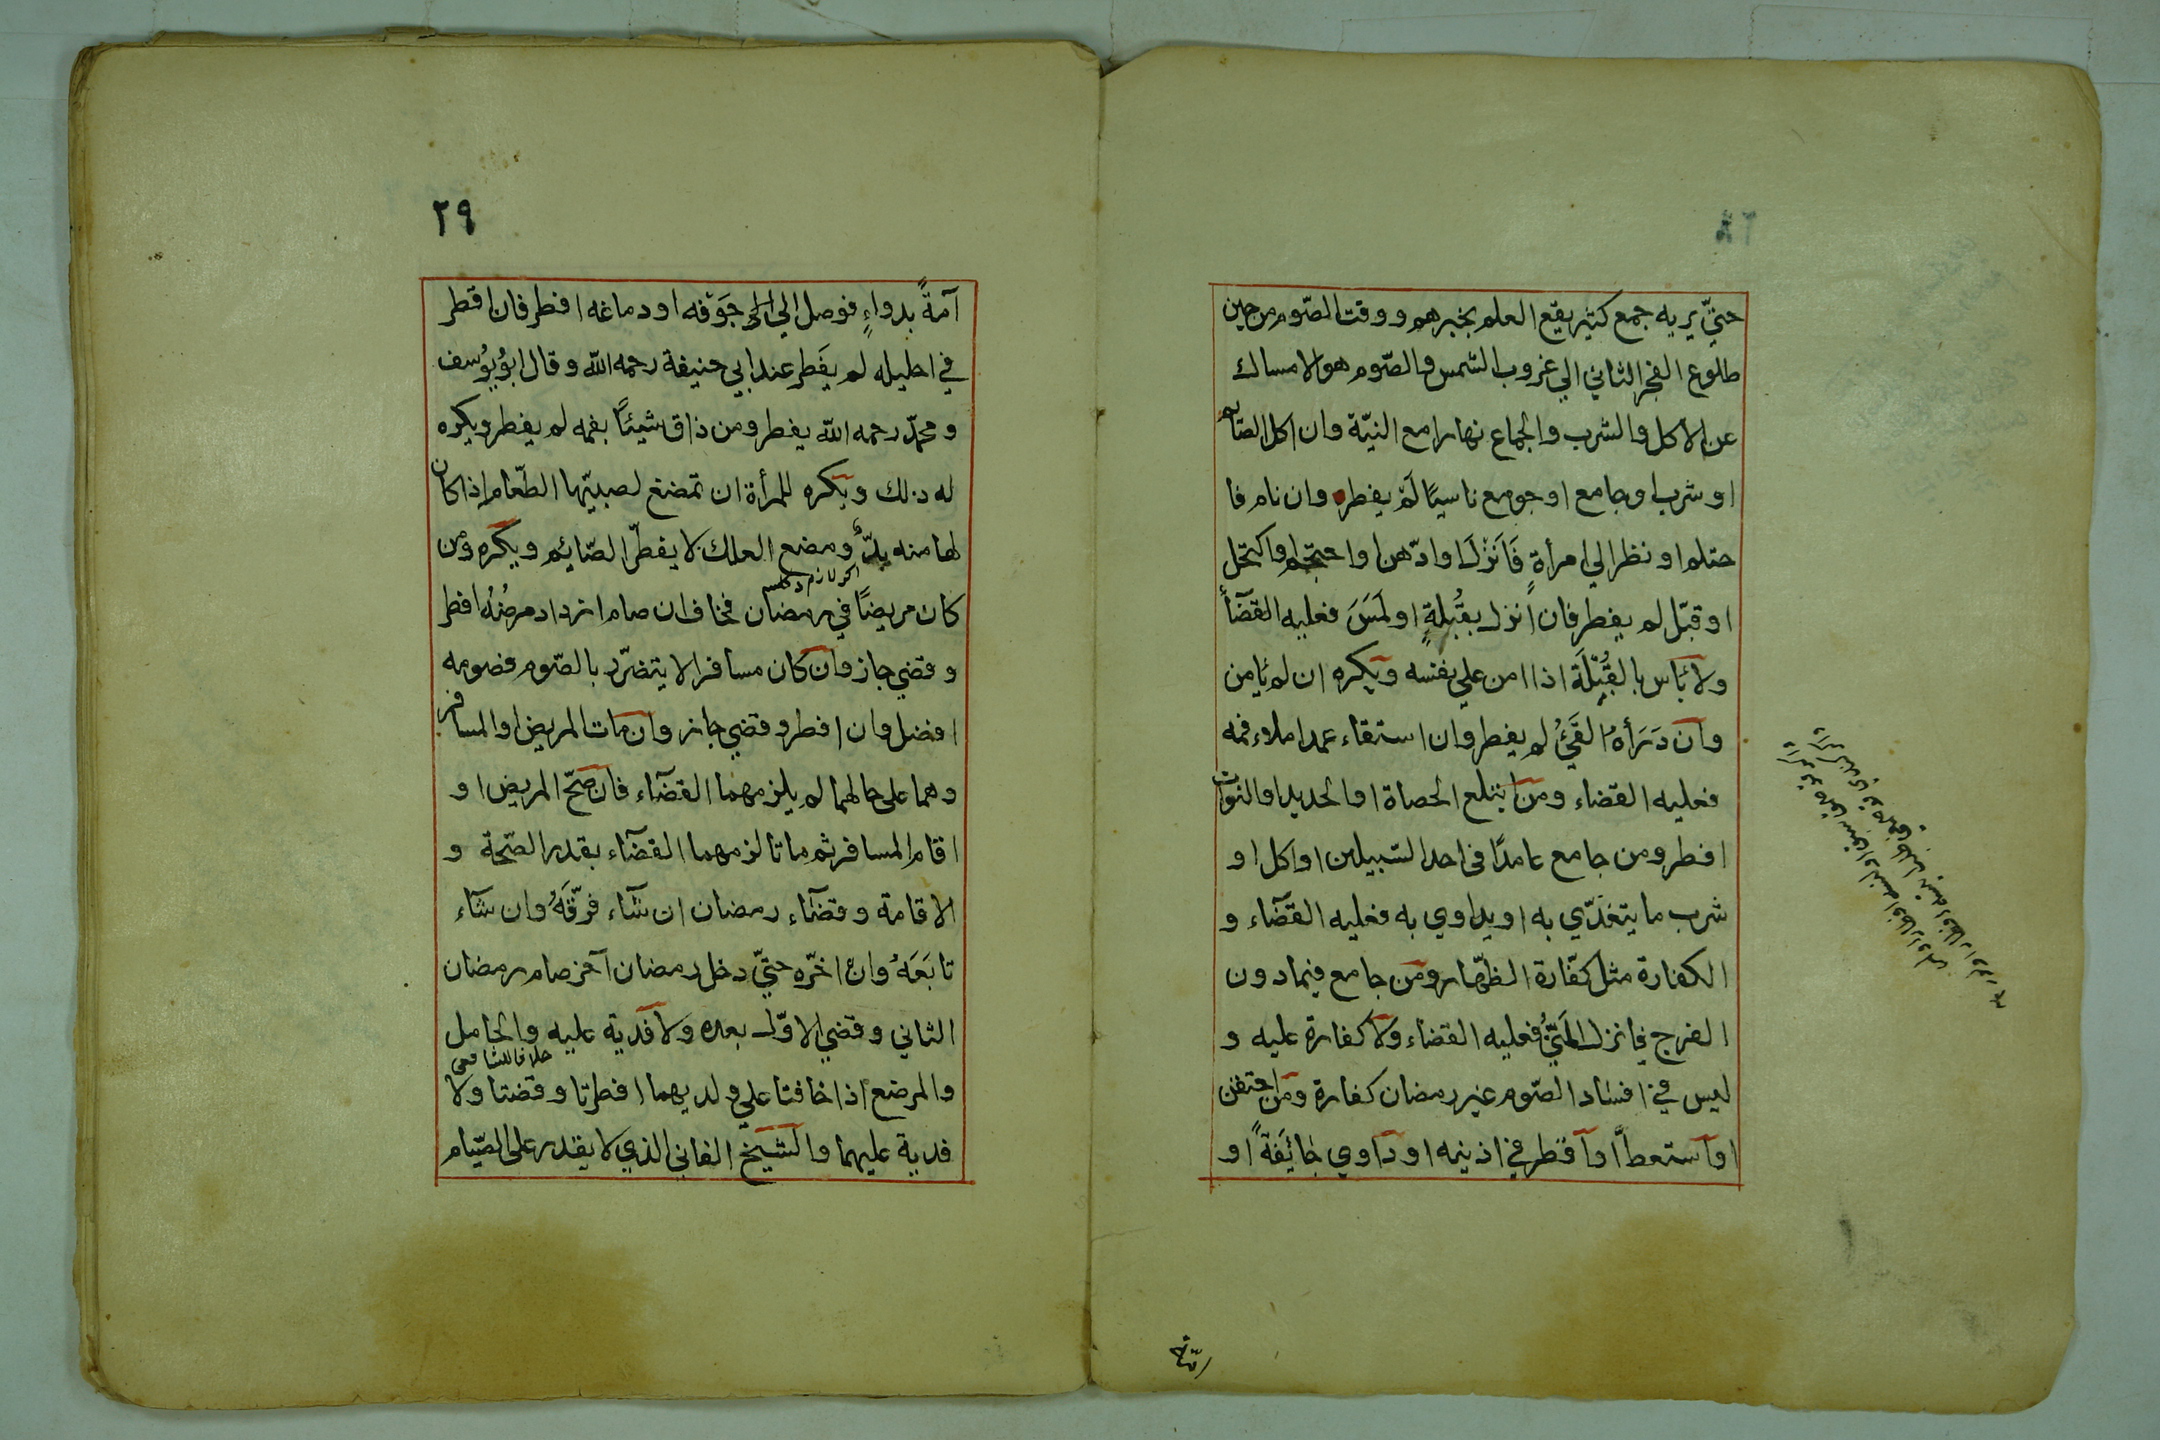 حتّي يريه جمع كثير يقع العلم بخبرهم ووقت الصّوم من حين
طلوع الفجر الثاني الي غروب الشمس والصّوم هو الامساك
عن الاكل والشرب والجماع نهارا مع النيّة وان اكل الصائم
او شرب او جامع او جومع ناسيًا لَمْ يفطره وان نام فا
حتلم او نظر الي امرأةٍ فَاَنْزَلَ او ادّهن او احتجم او اكتحل
او قبّل لم يفطر فان انزل بقُبلةٍ او لَمَسَ فعليه القضآأ
ولا بَأس بالقُبْلَة اذا امن علي نفسه ويكره ان لم يَامن
وان دَرَأهُ القَيْءُ لم يفطر وان استقاء عمدا ملاء فمه
فعليه القضاء ومن ابتلع الحصاة او الحديد او النوات
افطر ومن جامع عامدًا في احد السّبيلين او اكل او
شرب ما يتغذّي به او يداوي به فعليه القضآء و
الكفارة مثل كفّارة الظهّار ومن جامع فيما دون
الفرج فانزل المَنّيُ فعليه القضاء ولا كفارة عليه و
ليس في افساد الصّوم غير رمضان كفارة ومن احتقن
او استعطّ او اقطر في اذينه او داوي جَائيفَةً او
امّة
٢٩
آمةً بدواءٍ فوصل الي الي جَوْفه او دماغه افطر فان اقطر
في احليله لم يفَطر عند ابي حنيفة رحمه الله وقال ابوُيوُسف
ومحمدّ رحمه الله يفطر ومن ذاق شيئًا بفمه لم يفطر ويكره
له ذلك ويكره للمرأة ان تمضغ لصبيّها الطّعام إذا كان
لها منه بدٌّ ومضغ العلك لا يفطرّ الصّائم ويكره ومن
كان مريضًا في رمضان فخاف ان صام ازداد مرضُهُ افطر
وقضي جاز وان كان مسافرا لا يتضرّر بالصّوم فصومه
افضل وان افطر وقضي جاز وان مات المريض او المسافر
وهما علي حالهما لم يلزمهما القضآء فان صحّ المريض او
اقام المسافر ثم ماتا لزمهما القضآء بقدر الصّحة و
الاقامة وقضآء رمضان ان شآء فرّقَهُ وان شآء
تابَعَهُ وان اخّره حتيّ دخل رمضان آخر صام رمضان
الثاني وقضي الاوّل بعده ولا فدية عليه والحامل
خلافا للشافعي
والمرضع اذا خافتا علي ولديهما افطرتا وقضتا ولا
فدية عليهما والشّيخ الفاني الذي لا يقدر علي الصّيام